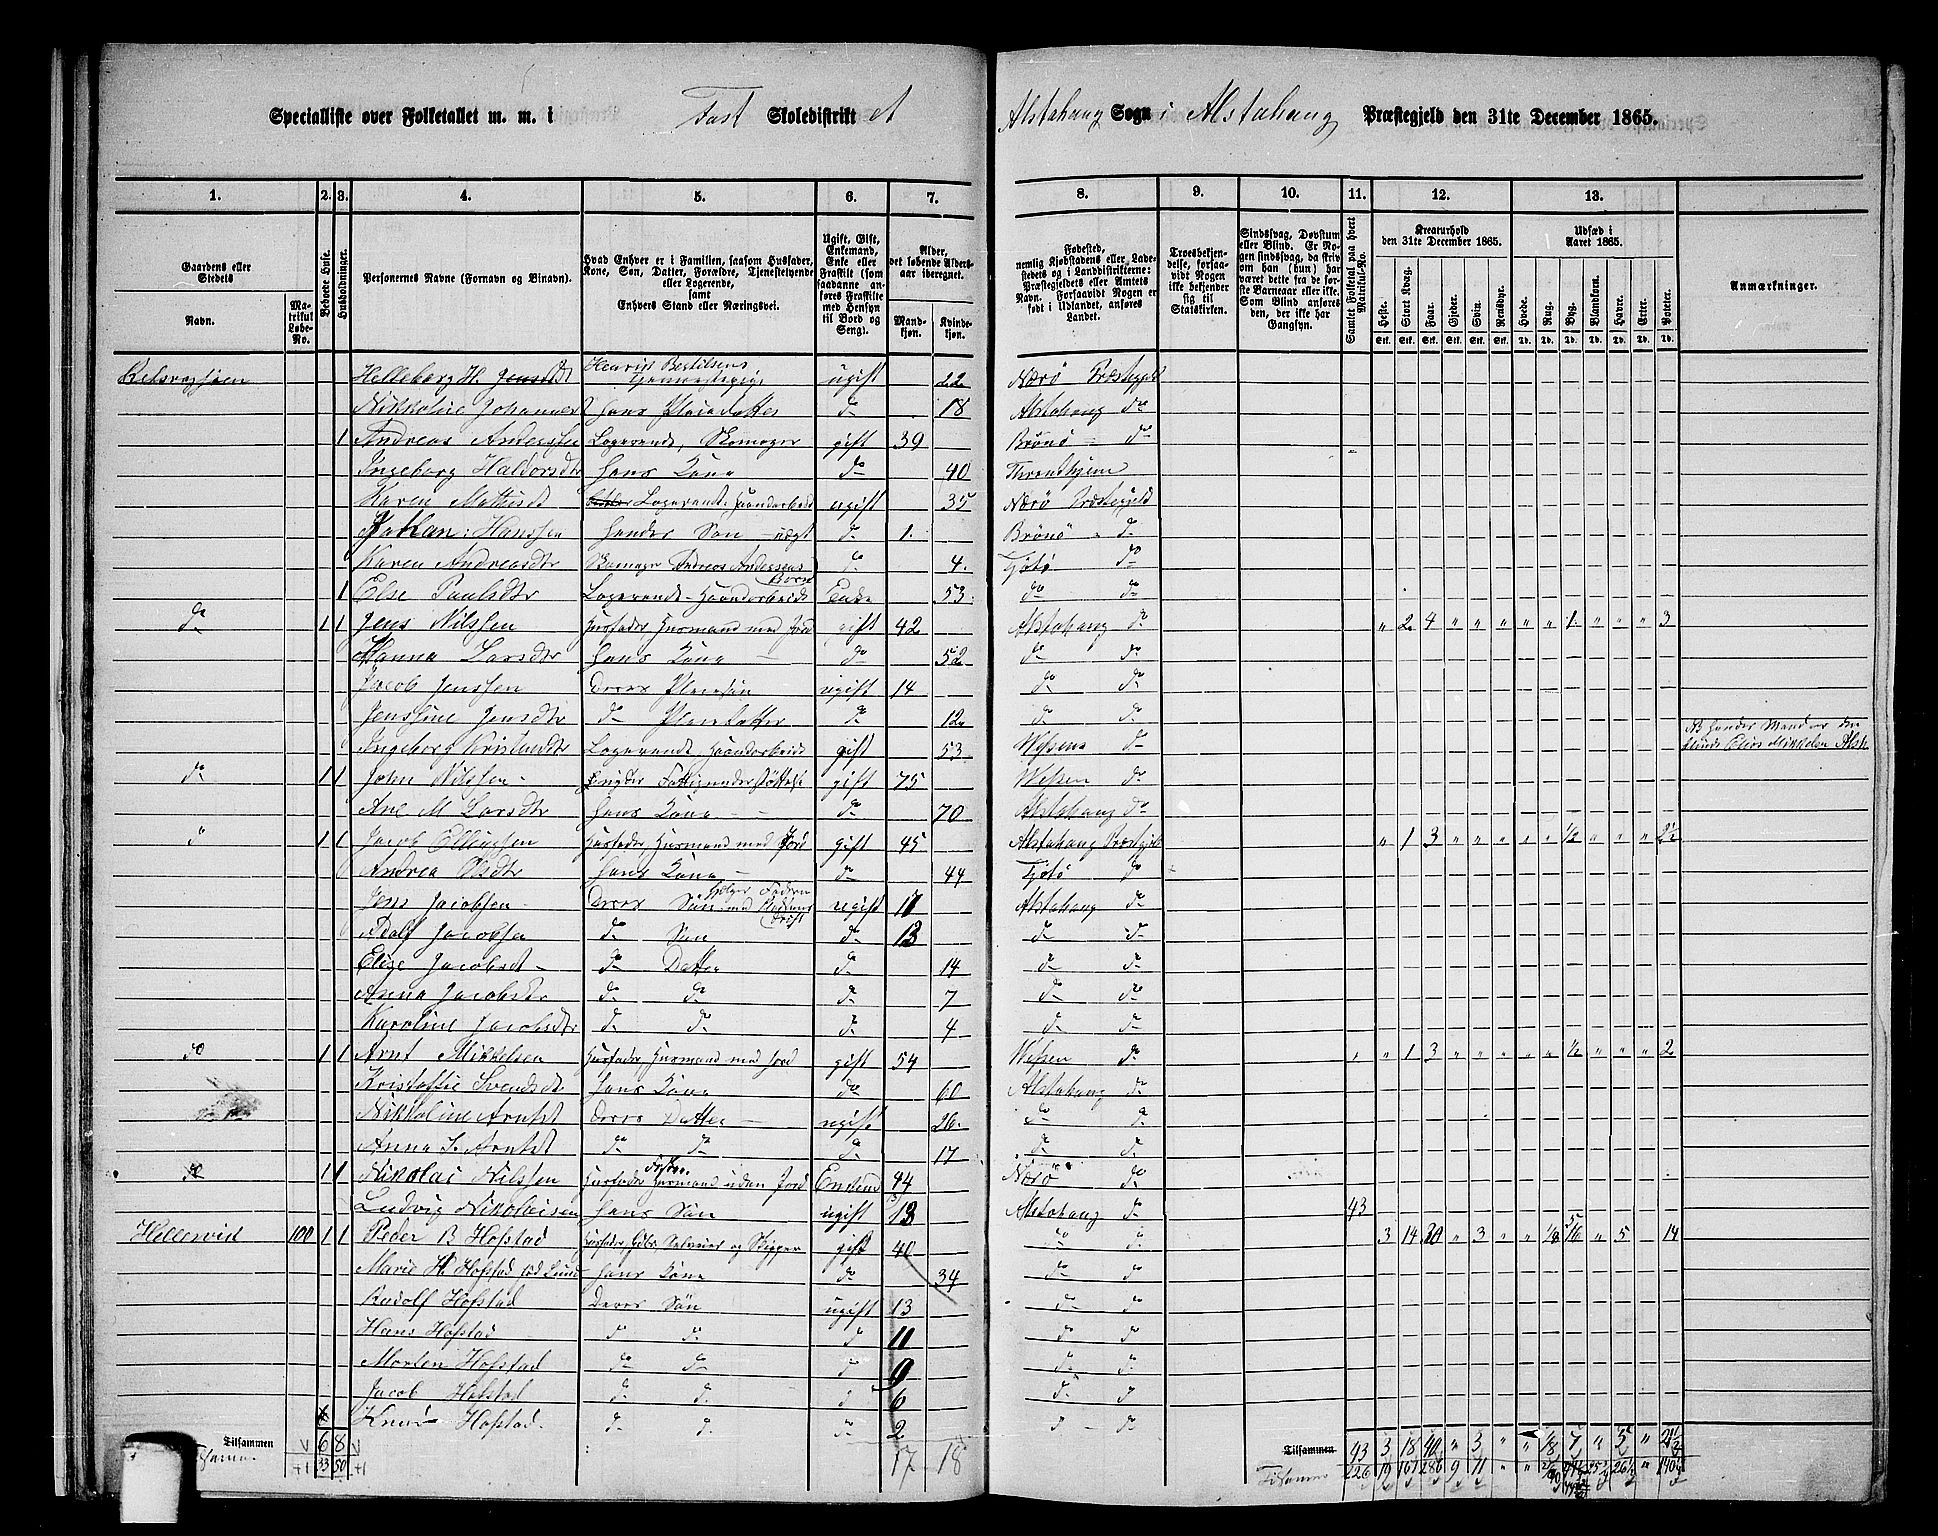 Specialliste over Folketallet m. m. i Fast Skoledistrikt
Alstahaug Sogn i Alstahaug Præstegjeld den 31te December 1865.
1. 2. 3. 4. 5. 6. 7. 8. 9. 10. 11. 12. 13.
Gaardens eller Stedets
Navn.
Matrikul Løbe-No.
Beboede Huse.
Husholdninger.
Personernes Navne (Fornavn og Binavn).
Hvad Enhver er i Familien, saasom Husfader, Kone, Søn, Datter, Forældre, Tjenestetyende eller Logerende, samt Enhvers Stand eller Næringsvei.
Ugift, Gift, Enkemand, Enke eller Fraskilt (som saadanne anføres Fraskilte med Hensyn til Bord og Seng).
Alder, det løbende Alders-aar iberegnet.
Mandkjøn. Kvindekjøn.
Fødested, nemlig Kjøbstadens eller Ladestedets og i Landdistrikterne: Præstegjeldets eller Amtets Navn. Forsaavidt Nogen er født i Udlandet, anføres Landet.
Troesbekjendelse, forsaavidt Nogen ikke bekjender sig til Statskirken.
Sindssvag, Døvstum eller Blind. Er Nogen sindssvag, da skriv om han (hun) har været dette fra de første Barneaar eller ikke. Som Blind anføres den, der ikke har Gangsyn.
Samlet Folketal paa hvert Matrikul-No.
Kreaturhold den 31te December 1865.
Heste. Stort Kvæg. Faar. Gjeder. Sviin. Rensdyr.
Udsæd i Aaret 1865.
Hvede. Rug. Byg. Blandkorn. Havre. Erter. Poteter.
Anmærkninger.
Helleborg H. Jensdt ugift 22 Nærø Præstegjeld
Nikoline Johannes hans Pleiedatter do 18 Alstahaug do
1 Andreas Anderssen Logerende, Skomager gift 39 Brønø do
Ingeborg Haldorsdtr hans Kone do 40 Throndhjem
Karen Mathisdt Logerende, Haandarbeid ugift 35 Nærø Præstegjeld
Hanssen hendes Søn uægt do 1 Brønø do
Karen Andreasdtr Skomager Andreas Anderssens Børn do 4 Tjøtø do
1 Else Paulsdtr Logerende Haandarbeide Enke 53 do do
do 1 1 Jens Nilssen Husfader Husmand med Jord gift 42 Alstahaug do " 2 4 " " " " " 1 " " " 3
Hanna Larsdtr hans Kone do 52 do do
Jacob Jenssen Deres Pleiesøn ugift 14 do do
Jenssine Jensdtr do Pleiedatter do 12 do do
Ingeborg Kristensdtr Logerende Haandarbeide gift 53 Vefsen do
do 1 1 John Nilssen gift 75 Vefsen do
Ane M Larsdtr hans Kone do 70 Alstahaug do
" 1 1 Jacob Ellingsen Husfader Husmand med Jord gift 45 Alstahaug Præstegjeld " 1 3 " " " " " 1/2 " " " 2 1/2
Andrea Olsdtr hans Kone do 44 Tjøtø do
Jens Jacobsen Deres Søn ugift 17 Alstahaug do
Adolf Jacobsen do Søn do 13 do do
Elise Jacobsdt do Datter do 14 do do
Anna Jacobsdtr do do do 7 do do
Karoline Jacobsdtr do do do 4 do do
do 1 1 Arnt Mikkelsen Husfader Husmand med Jord gift 54 Vefsen do " 1 3 " " " " " 1/2 " " " 2
Kristoffie Svendsdtr hans Kone do 60 Alstahaug do
Nikoline Arntsdt Deres Datter ugift 26 do do
Anna S. Arntsdt do do do 17 do do
do 1 1 Nikolai Nilssen Husfader Husmand uden Jord Enkemd 44 Nærø do
Ludvig Nikolaisen hans Søn ugift 13 Alstahaug do 43
Hellesvik 100 1 1 Peder B Hofstad Husfader, Gdbr. Selveier og Skipper gift 40 do do 3 14 30 " 3 " " 1/8 5/6 " 5 " 14
Marie H. Hofstad fød Lund hans Kone do 34 do do
Rudolf Hofstad Deres Søn ugift 13 do do
Hans Hofstad do do do 11 do do
Morten Hofstad do do do 9 do do
Jacob Hofstad do do do 6 do do
Knud Hofstad do do do 2 do do
Tilsammen 6 8 17 18 Tilsammen 43 3 18 40 " 3 " " 1/8 7 " 5 " 21 1/2